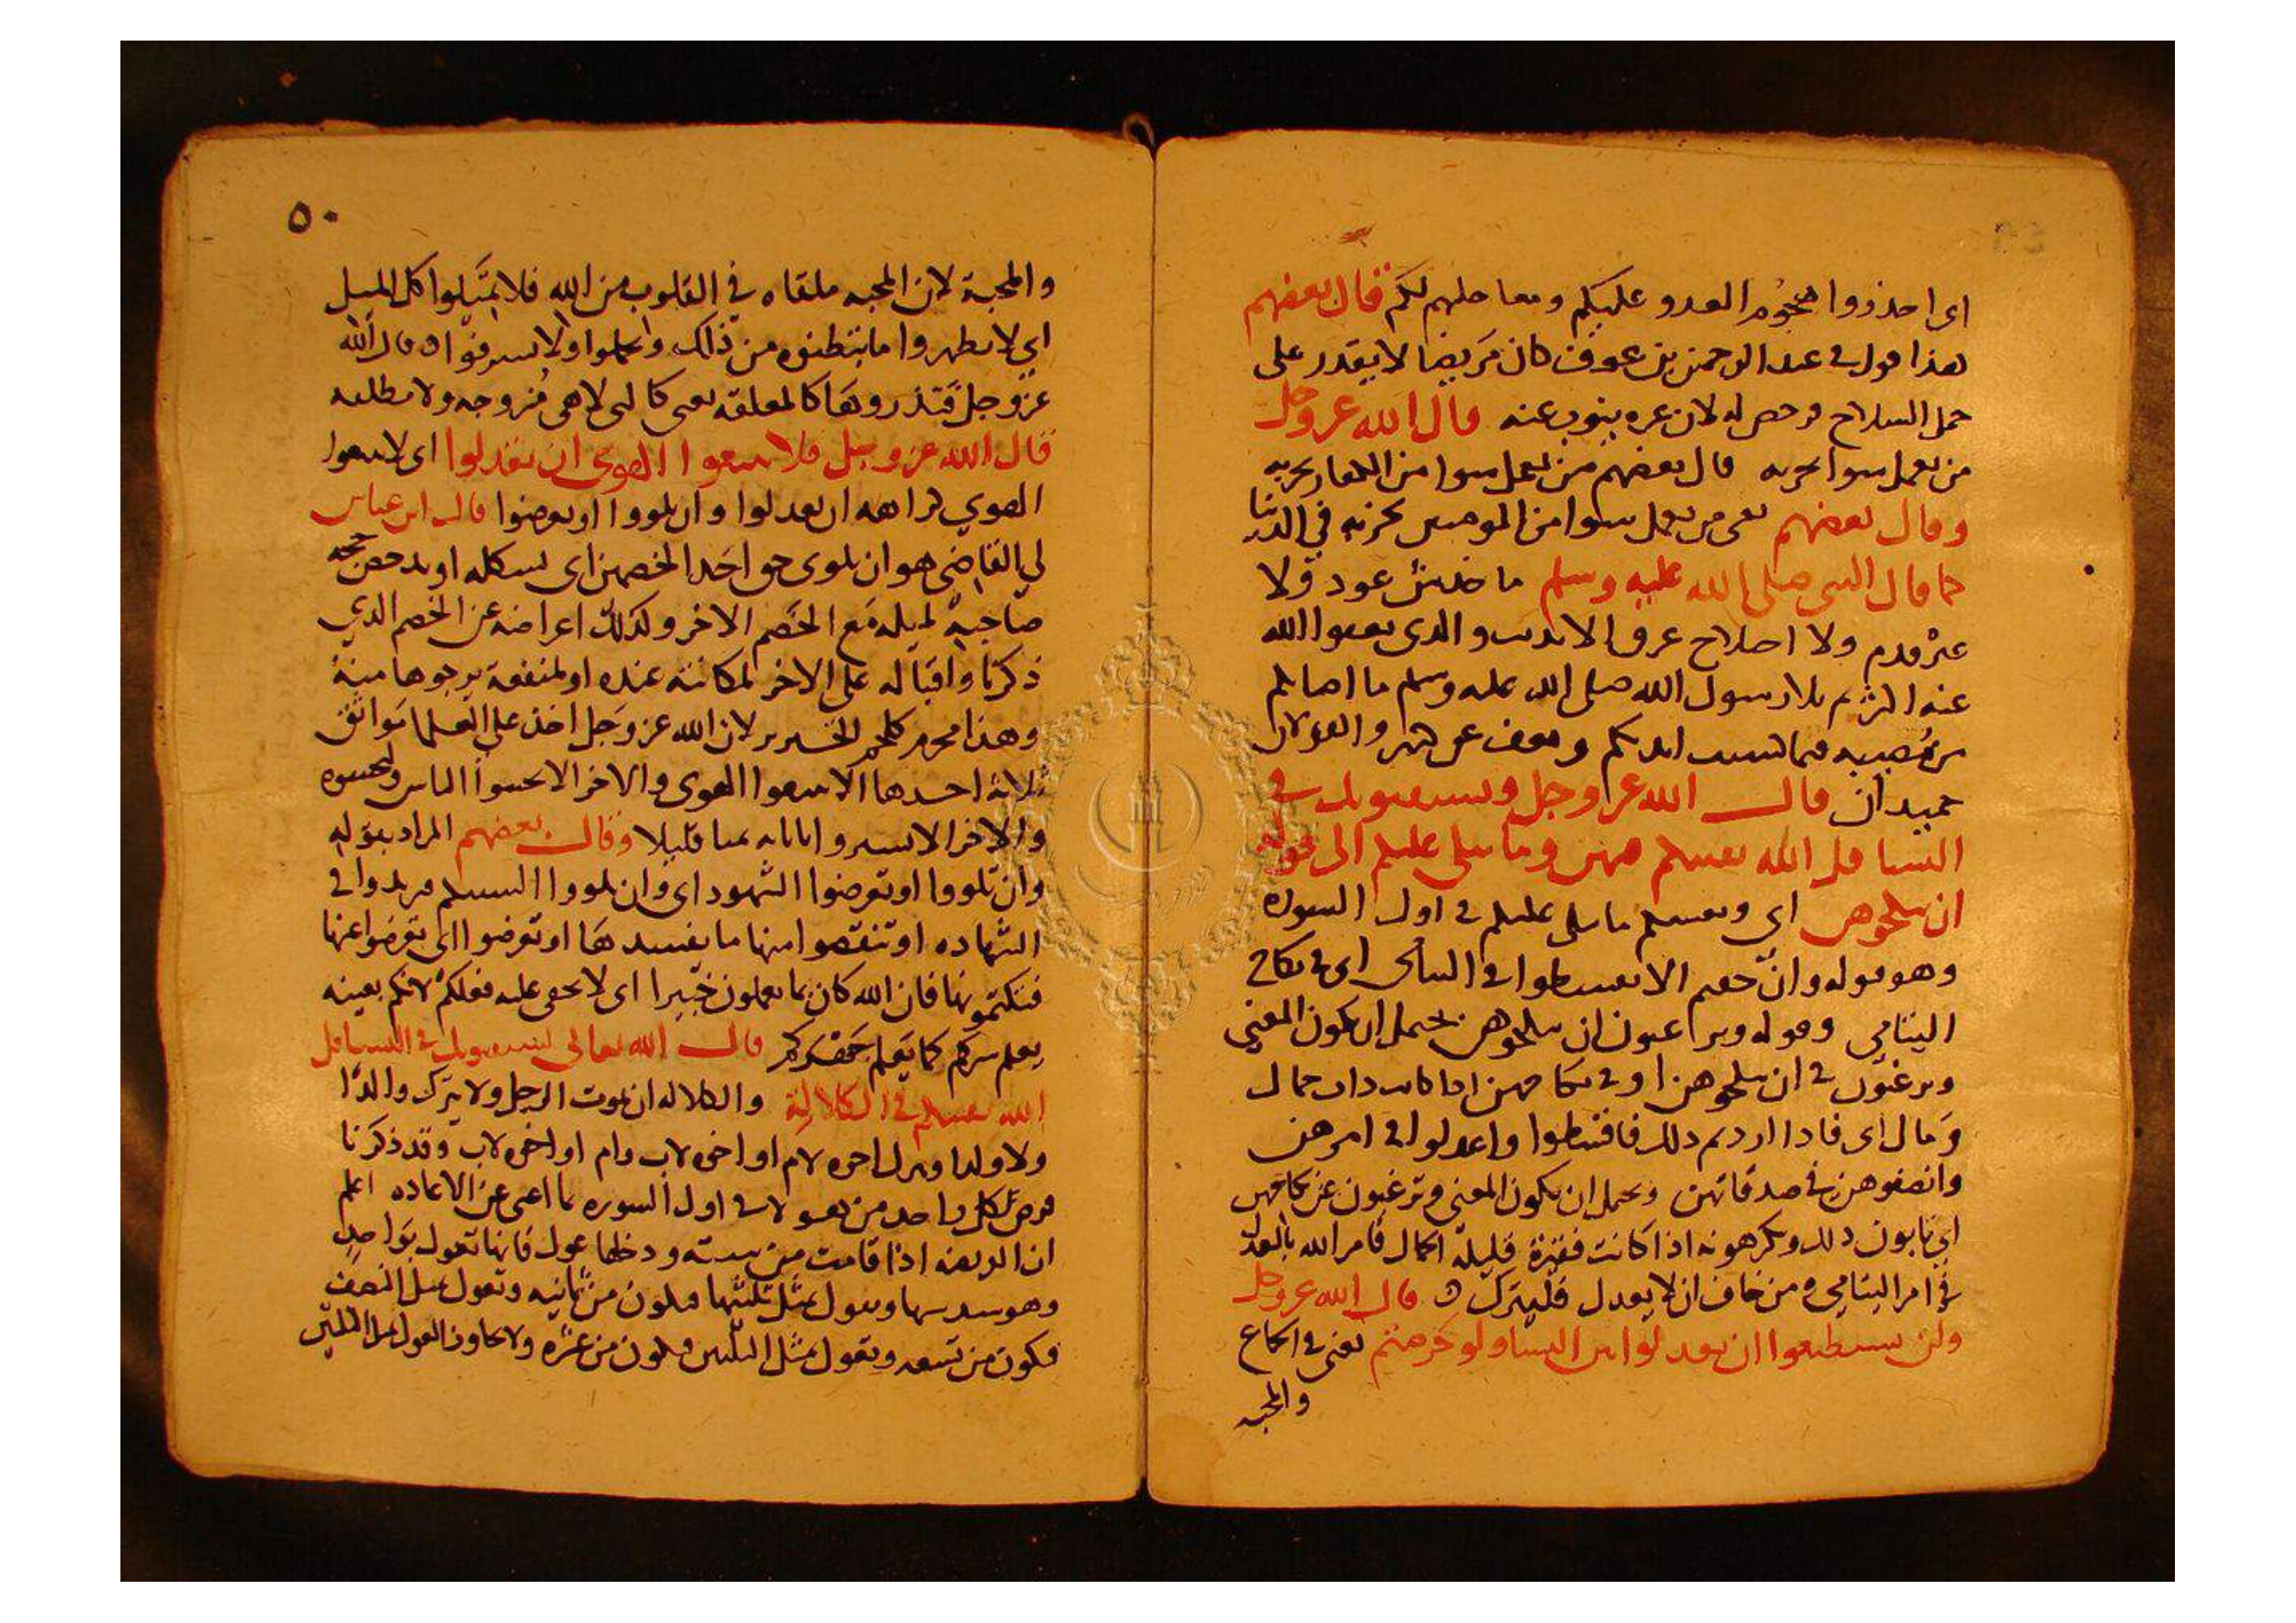 اى احذروا هجوم العدو عليكم ومعاجلتهم لكم فقال بعضهم
هذا نزل فى عبد الرحمن بن عوف كان مريضا لا يقدر على
حمل السلاح فرخص له لان غيره ينوب عنه قال الله عز وجل
من يعمل سوا يجز به قال بعضهم من يعمل سوا من الكفار يجز به
وقال بعضهم يعنى من يعمل سوا من المومنين يجز به فى الدنيا
كما قال النبى صلى الله عليه وسلم ما خدش عود ولا
عثر قدم ولا اختلاج عرق الا بذنب والذى يعفوا الله
عنه اكثر ثم تلا رسول الله صلى الله عليه وسلم ما اصابكم
من مصيبه فبما كسبت ايديكم ويعفو عن كثير والقولان
جيدان قال الله عز وجل ويستفتونك فى
النسا قل الله يفتيكم فيهن وما يتلى عليكم الى قوله
ان تنكحوهن اى ويفتيكم ما يتلى عليكم فى اول السوره
وهو قوله وان خفتم الا تقسطوا فى اليتامى اى فى نكاح
اليتامى وقوله وترغبون ان تنكحوهن يحتمل ان يكون المعنى
وترغبون فى ان تنكحوهن او فى نكاحهن اذا كانت ذات جمال
ومال اى فاذا اردتم ذلك فاقسطوا واعدلوا فى امرهن
وانصفوهن فى صدقاتهن ويحتمل ان يكون المعنى وترغبون عن نكاحهن
اى تابون ذلك وتكرهونه اذا كانت فقيرة قليلة الجمال فامر الله بالعدل
فى امر اليتامى ه من خاف ان لا يعدل فليترك ه قال الله عز وجل
ولن تستطيعوا ان تعدلوا بين النسا ولو حرصتم يعنى فى الجماع
والمحبه
٥٠
والمحبة لان المحبه ملقاه في القلوب من الله فلا تميلوا كل الميل
اي لا تظهروا ما تبتطنوه من ذلك واعملوا ولا تسرفوا ه قال الله
عز وجل فتذروها كالمعلقه يعنى كالتى لا هى مزوجه ولا مطلقه
قال الله عز وجل فلا تتبعوا الهوى ان تعدلوا اى لا تتبعوا
الهوي كراهه ان تعدلوا وان تلووا او تعرضوا قال ابن عباس
لي القاضى هو ان يلوى حق احد الخصمين اى يشكله او يدحض حجه
صاحبه لميله مع الخصم الاخر وكذلك اعراضه عن الخصم الذي
ذكرنا واقباله على الاخر لمكانته عنده او لمنفعة يرجوها منه
وهذا محرم كلحم الخنزير لان الله عز وجل اخذ على العلما مواثق
ثلاثه احدها الا يتبعوا الهوى والاخر الا يخشوا الناس ويخشوه
والاخر الا يشتروا باياته ثمنا قليلا وقال بعضهم المراد بقوله
وان تلووا او تعرضوا الشهود اى وان تلووا السنتكم فزيدوا فى
الشهاده او تنقصوا منها ما يفسدها او تعرضوا اى تعرضوا عنها
فتكتمونها فان الله كان بما تعملون خبيرا اى لا يخفى عليه فعلكم لانكم بعينه
يعلم سركم كما يعلم جهركم قال الله تعالى يستفتونك فى النسا قل
الله يفتيكم فى الكلالة والكلاله ان يموت الرجل ولا يترك والدا
ولا ولدا ويترك اخوه لام او اخوه لاب وام او اخوه لاب وقد ذكرنا
فرض كل واحد من هولا فى اول السوره ما اغنى عن الاعاده اعلم
ان الفريضه اذا قامت من سته ودخلها عول فانها تعول بواحد
وهو سدسها وتعول بمثل ثلثها فتكون من ثمانيه وتعول بمثل النصف
فتكون من تسعه وتعول بمثل الثلثين فتكون من عشره ولا يجاوز العول مثل الثلثين